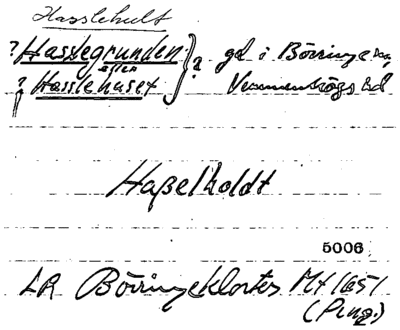 Hasslehult
? Hasslegrunden } ? gd i Börringe sn,
eller
? Hasslehuset Vemmenhögs hd
Haßelholdt
5006
LR Börringeklosters Mt 1651
(Ping.)